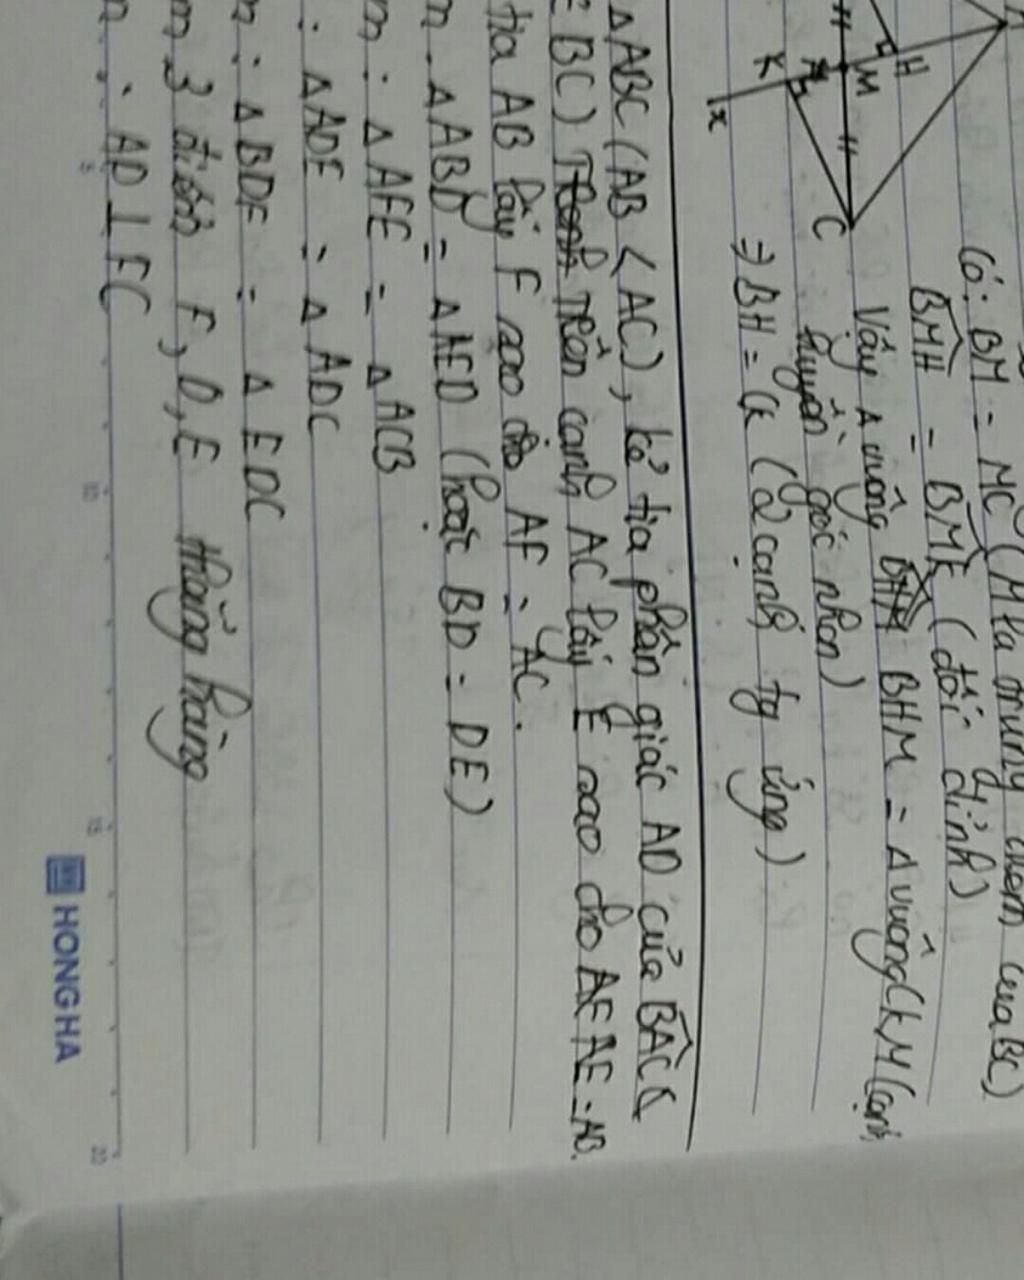 A
H
M
H
H
K
x
C
Có: BM = MC (M là trung điểm của BC)
BMH = BMK (đối đỉnh)
Vậy Δ vuông BHM = Δ vuông CKM (cạnh
huyền góc nhọn)
⇒ BH = CK (2 cạnh tg ứng)
ΔABC (AB < AC), kẻ tia phân giác AD của BAC (
∈ BC) Trên cạnh AC lấy E sao cho AE = AB.
tia AB lấy F sao cho AF = AC.
m. ΔABD = ΔAED (hoặc BD = DE)
m: Δ AFE = Δ ACB
: Δ ADF = Δ ADC
m: Δ BDF = Δ EDC
m 3 điểm F, D, E thẳng hàng
m: AD ⊥ FC
5 10 15 20
HONG HA